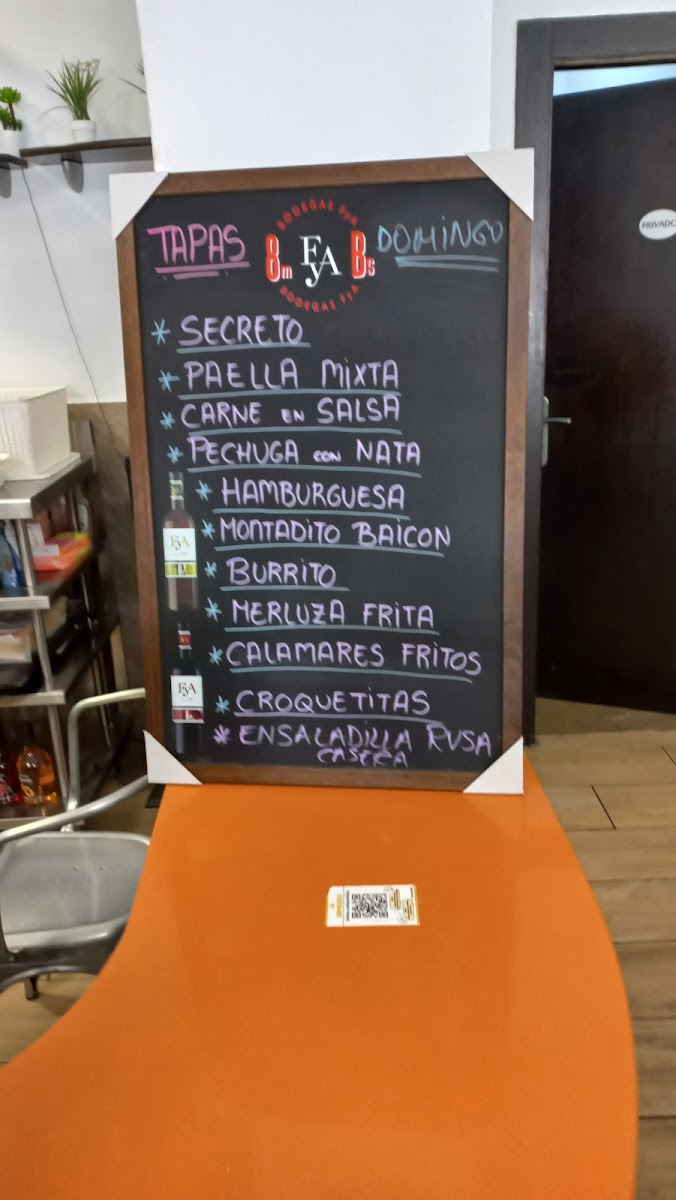 TAPAS
BODEGAS FyA
8m FyA Bs
BODEGAS FYA
DOMINGO
* SECRETO
* PAELLA MIXTA
* CARNE EN SALSA
* PECHUGA CON NATA
* HAMBURGUESA
* MONTADITO BAICON
* BURRITO
* MERLUZA FRITA
* CALAMARES FRITOS
* CROQUETITAS
* ENSALADILLA RUSA
CASERA
FyA
FyA
PRIVADO